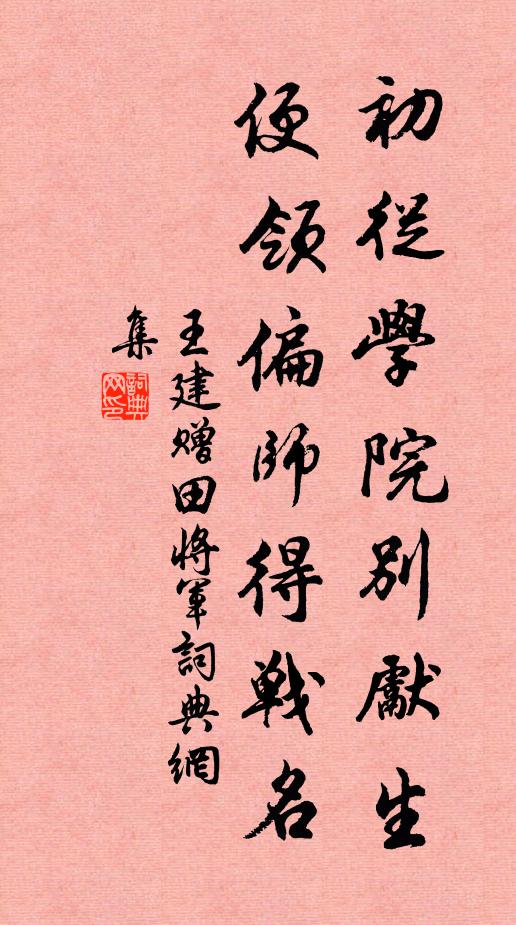 初從學院別獻生
便領偏師得戰名
王建贈田將軍詞典網
集
詞典
网印